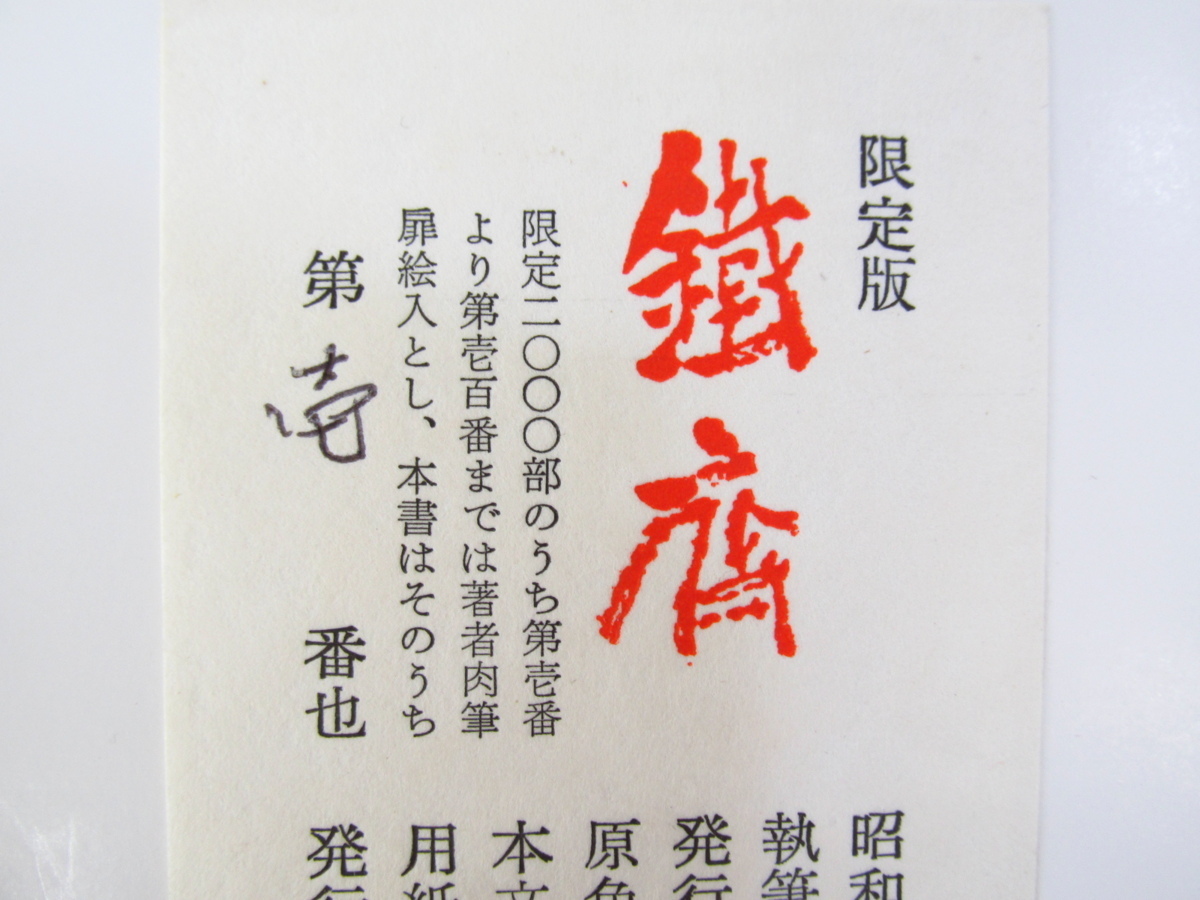 限定版
鐵齋
限定二〇〇〇部のうち第壱番
より第壱百番までは著者肉筆
扉絵入とし、本書はそのうち
第 壱 番也
昭和
執筆
発行
原色
本文
用紙
発行